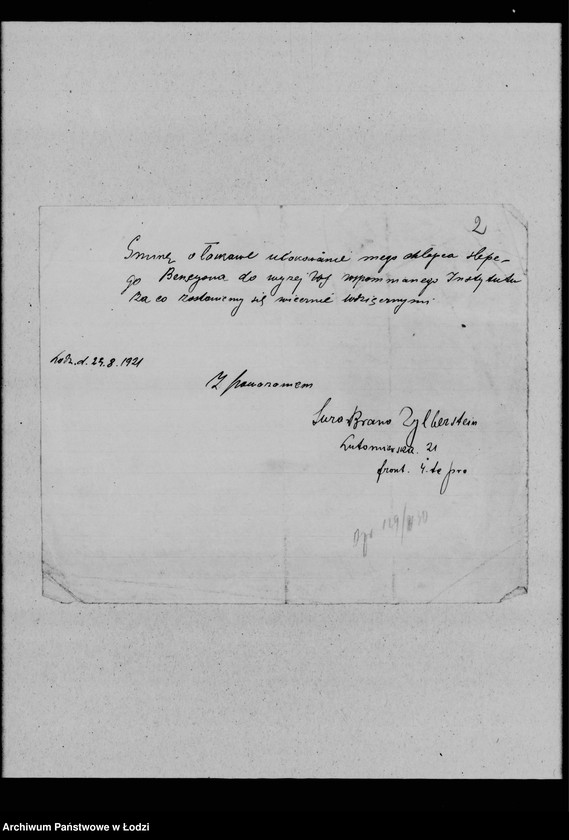 2
Gminę o łaskawe ulokowanie mego chłopca ślepe-
go Bencyona do wyżej wspomnianego Instytutu
Za co zostaniemy się wiecznie wdzięcznymi.
Łódź. d. 29. 8. 1921
Z poważaniem
Sura Brana Zylberstein
Lutomierska. 21
front. 4.te
Archiwum Państwowe w Łodzi